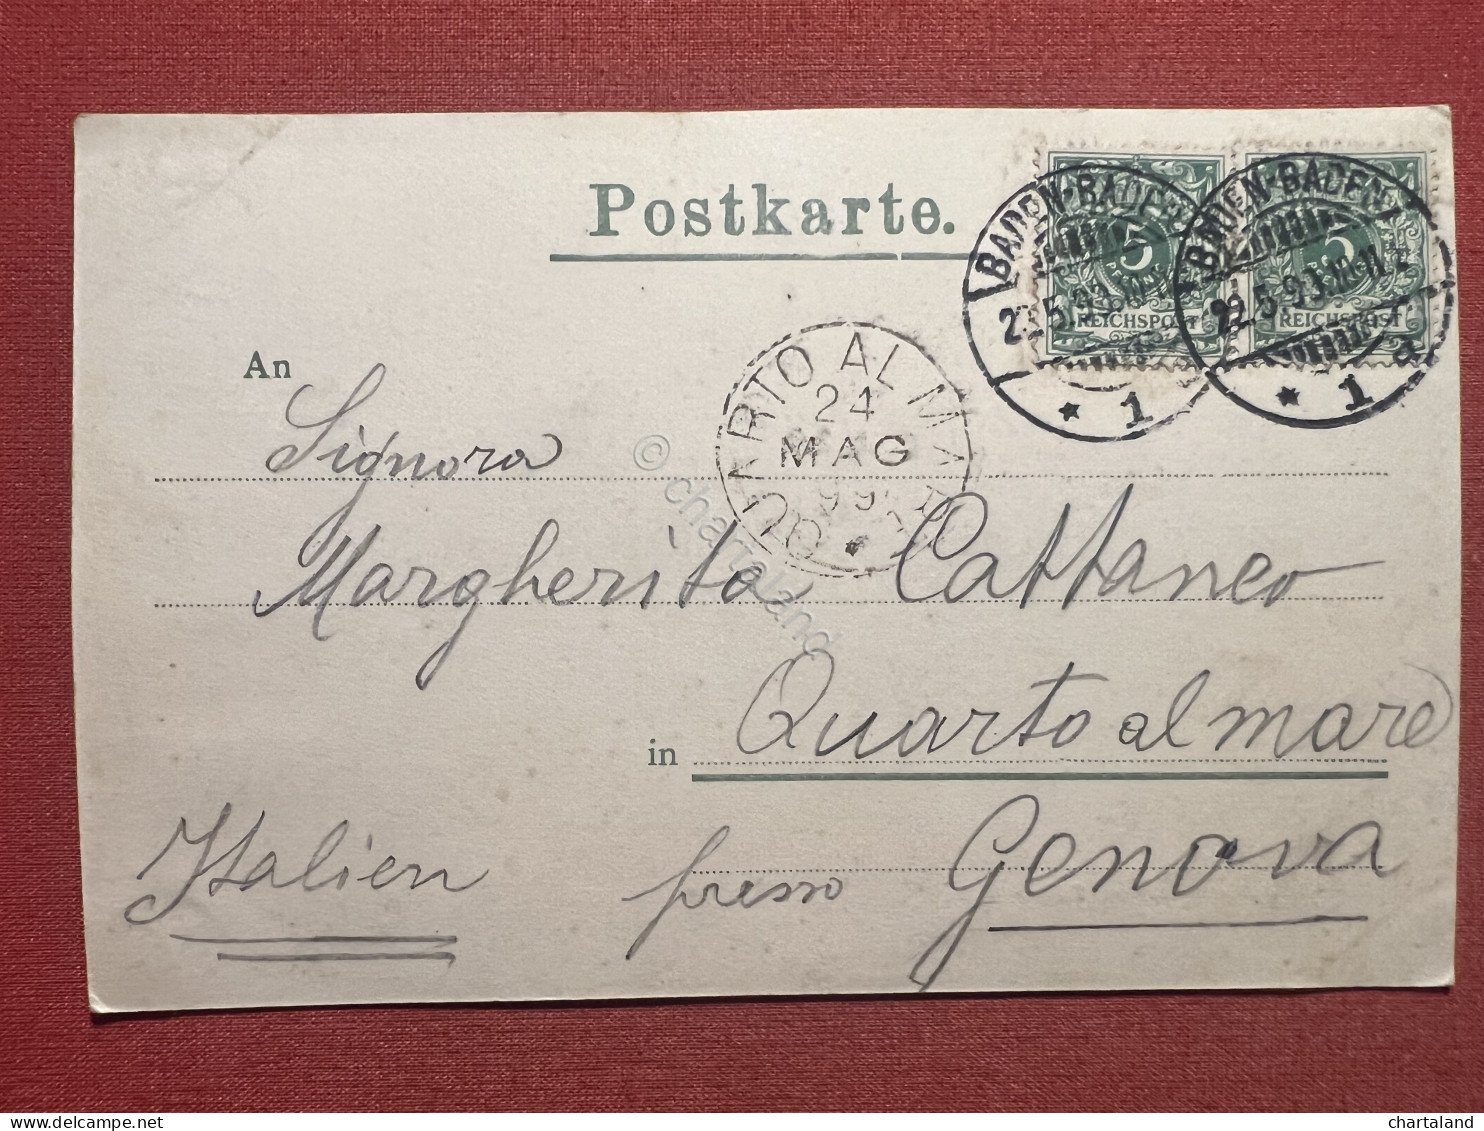 Postkarte.
BADEN-BADEN
22.5.99.
* 1 d
BADEN-BADEN
22.5.99.
* 1 d
5
PFENNIG
REICHSPOST
5
REICHSPOST
QUARTO AL MARE
24
MAG
99
An
Signora
Margherita Cattaneo
in Quarto al mare
Italien presso Genova
© chartaland
chartaland
www.delcampe.net